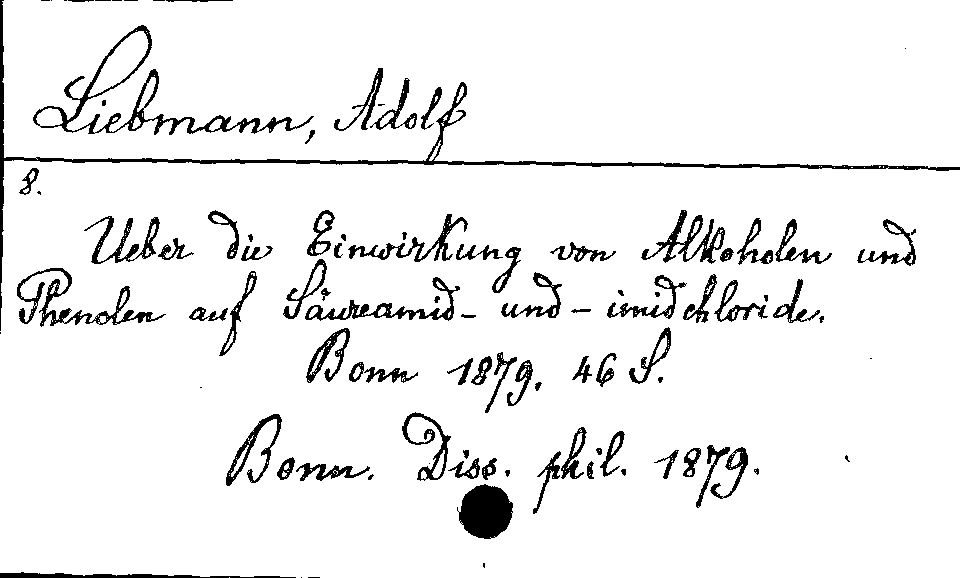 Liebmann, Adolf
8.
Ueber die Einwirkung von Alkoholen und
Phenolen auf Säureamid- und -imidchloride.
Bonn 1879. 46 S.
Bonn. Diss. phil. 1879.